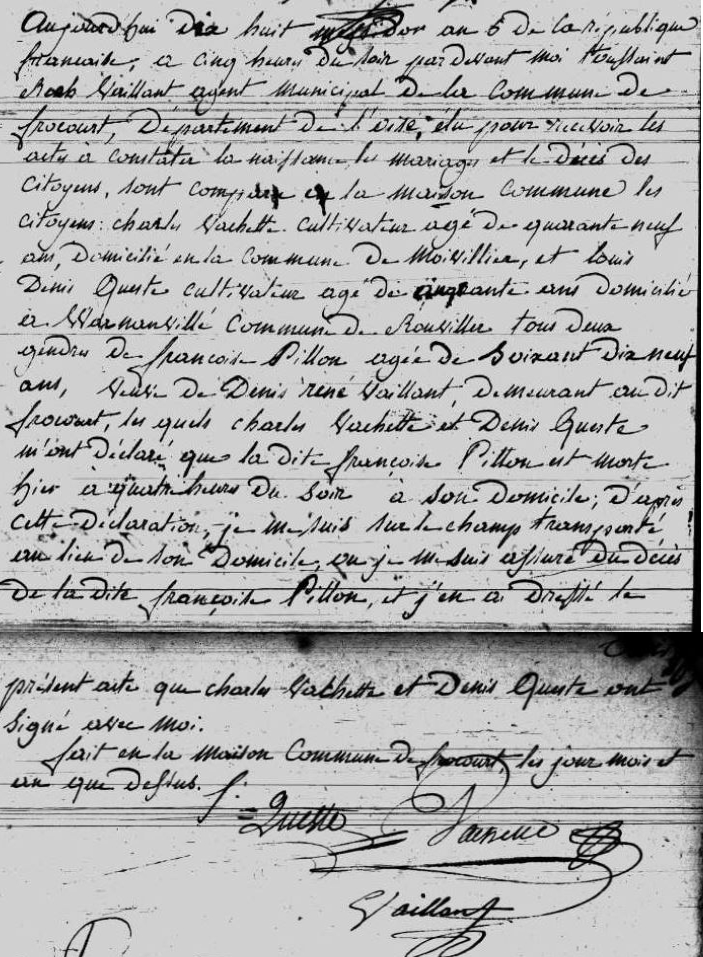 Aujourdhui dix huit messidor an 6 de la republique
francaise, a cinq heures du soir par devant moi toussaint
Roch Vaillant agent municipal de la Commune de
frocourt, Département de l'oise, élu pour recevoir les
actes à constater la naissance, les mariages et le décès des
Citoyens, sont comparu en la maison Commune les
citoyens: charles Vachette cultivateur agé de quarante neuf
ans, Domicilié en la Commune de Moivillier, et louis
Denis Queste cultivateur agé de cinquante ans domicilié
à Warnanvillé Commune de Rouviller tous deux
gendres de francoise Pillon agée de Soixant dix neuf
ans, veuve de Denis rené Vaillant, demeurant au dit
frocourt, les quels charles Vachette et Denis Queste
m'ont déclaré que la dite françoise Pillon est morte
hier à quatre heures du soir à son domicile; d'après
cette déclaration, je me suis sur le champ transporté
au lieu de son Domicile, ou je me suis assuré du décès
de la dite françoise Pillon, et j'en ai dressé le
présent acte que charles Vachette et Denis Queste ont
Signé avec moi.
fait en la maison Commune de frocourt, les jour mois et
an que dessus.
Queste Vachette
Vaillant